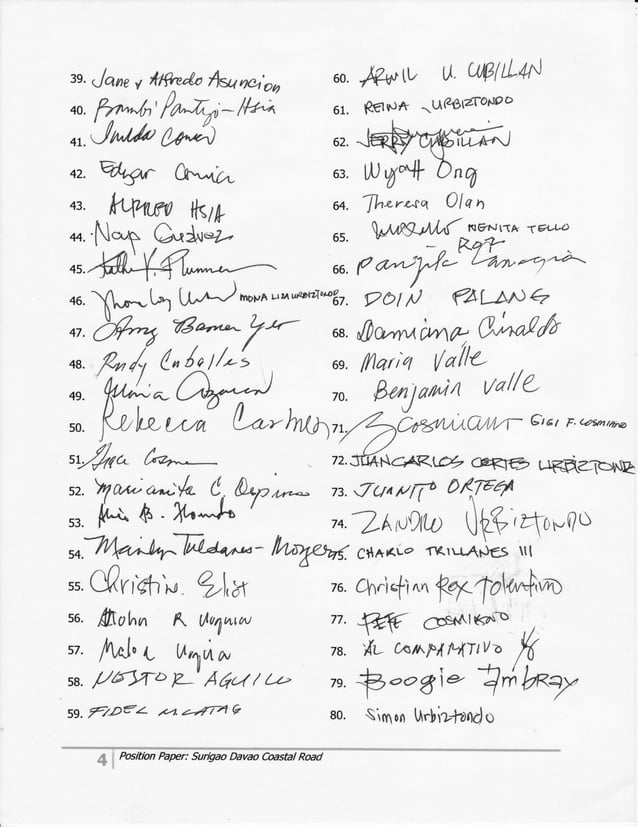 39. Jane y Alfredo Asuncion
40. Bambi Pantijo - Hsia
41. Imelda
42. Edgar
43. ALFREDO HSIA
44. Nap
45. Plummer
46. MONA LIZA URBIZTONDO
47. Amy
48. Rudy Caballes
49. Maria
50. Rebecca Carmen
51. Grace Cosme
52. Marianita C.
53. B.
54. Marilyn Tuldanes - Moyer
55. Christine
56. John R
57.
58. NESTOR AGUILLO
59. FIDEL
60. ARWIL U. CUBILLAN
61. REINA URBIZTONDO
62. JERRY CUBILLAN
63. Wyatt Ong
64. Theresa Olan
65. NENITA TELLO
66.
67. DOIN PALANG
68. Damiana Giraldo
69. Maria Valle
70. Benjamin Valle
71. GIGI F. COSMIANO
72. JUANCARLOS CORTES URBIZTONDO
73. JUANITO ORTEGA
74. ZANDRO URBIZTONDO
75. CHARLO TRILLANES III
76. Christian Rex Tolentino
77. PEPE COSMIANO
78. AL COMPARATIVO
79. Boogie Ambray
80. Simon Urbiztondo
4 Position Paper: Surigao Davao Coastal Road